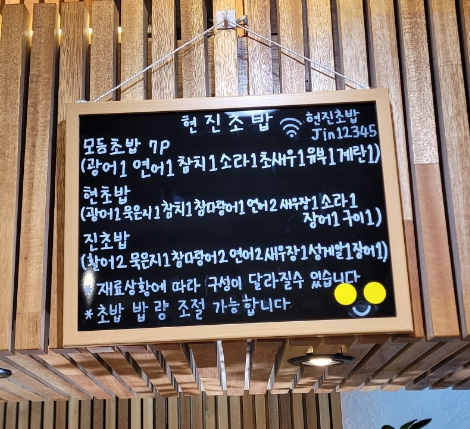 현진초밥 현진초밥
Jin12345
모듬초밥 7P
(광어1 연어1 참치1 소라1 초새우1 유부1 계란1)
현초밥
(광어1 묵은지1 참치1 참다랑어1 연어2 새우장1 소라1
장어1 구이1)
진초밥
(광어2 묵은지1 참다랑어2 연어2 새우장1 성게알1 장어1)
* 재료상황에 따라 구성이 달라질수 있습니다
* 초밥 밥 량 조절 가능합니다